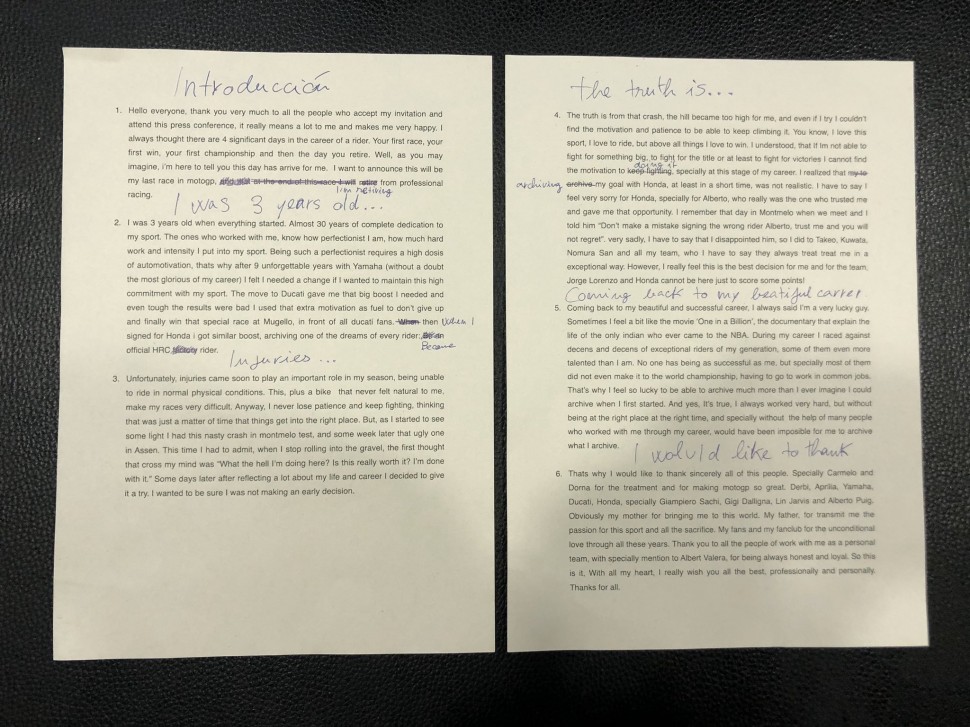 Introducción
1. Hello everyone, thank you very much to all the people who accept my invitation and
attend this press conference, it really means a lot to me and makes me very happy. I
always thought there are 4 significant days in the career of a rider. Your first race, your
first win, your first championship and then the day you retire. Well, as you may
imagine, i'm here to tell you this day has arrive for me. I want to announce this will be
my last race in motogp, at the end of this race I will retire from professional
I'm retiring
racing.
I was 3 years old...
2. I was 3 years old when everything started. Almost 30 years of complete dedication to
my sport. The ones who worked with me, know how perfectionist I am, how much hard
work and intensity I put into my sport. Being such a perfectionist requires a high dose
of automotivation, thats why after 9 unforgettable years with Yamaha (without a doubt
the most glorious of my career) I felt I needed a change if I wanted to maintain this high
commitment with my sport. The move to Ducati gave me that big boost I needed and
even tough the results were bad I used that extra motivation as fuel to don't give up
and finally win that special race at Mugello, in front of all ducati fans. When then When I
signed for Honda i got similar boost, archiving one of the dreams of every rider:
Became
official HRC factory rider.
Injuries...
3. Unfortunately, injuries came soon to play an important role in my season, being unable
to ride in normal physical conditions. This, plus a bike that never felt natural to me,
make my races very difficult. Anyway, I never lose patience and keep fighting, thinking
that was just a matter of time that things get into the right place. But, as I started to see
some light I had this nasty crash in montmelo test, and some week later that ugly one
in Assen. This time I had to admit, when I stop rolling into the gravel, the first thought
that cross my mind was "What the hell I'm doing here? Is this really worth it? I'm done
with it." Some days later after reflecting a lot about my life and career I decided to give
it a try. I wanted to be sure I was not making an early decision.
the truth is...
4. The truth is from that crash, the hill became too high for me, and even if I try I couldn't
find the motivation and patience to be able to keep climbing it. You know, I love this
sport, I love to ride, but above all things I love to win. I understood, that if Im not able to
fight for something big, to fight for the title or at least to fight for victories I cannot find
doing it
the motivation to keep fighting, specially at this stage of my career. I realized that my to
archiving archive my goal with Honda, at least in a short time, was not realistic. I have to say I
feel very sorry for Honda, specially for Alberto, who really was the one who trusted me
and gave me that opportunity. I remember that day in Montmelo when we meet and I
told him "Don't make a mistake signing the wrong rider Alberto, trust me and you will
not regret". very sadly, I have to say that I disappointed him, so I did to Takeo, Kuwata,
Nomura San and all my team, who I have to say they always treat treat me in a
exceptional way. However, I really feel this is the best decision for me and for the team.
Jorge Lorenzo and Honda cannot be here just to score some points!
Coming back to my beatiful carrer
5. Coming back to my beautiful and successful career, I always said I'm a very lucky guy.
Sometimes I feel a bit like the movie 'One in a Billion', the documentary that explain the
life of the only indian who ever came to the NBA. During my career I raced against
decens and decens of exceptional riders of my generation, some of them even more
talented than I am. No one has being as successful as me, but specially most of them
did not even make it to the world championship, having to go to work in common jobs.
That's why I feel so lucky to be able to archive much more than I ever imagine I could
archive when I first started. And yes, It's true, I always worked very hard, but without
being at the right place at the right time, and specially without the help of many people
who worked with me through my career, would have been imposible for me to archive
what I archive.
I would like to thank
6. Thats why I would like to thank sincerely all of this people. Specially Carmelo and
Dorna for the treatment and for making motogp so great. Derbi, Aprilia, Yamaha,
Ducati, Honda, specially Giampiero Sachi, Gigi Dalligna, Lin Jarvis and Alberto Puig.
Obviously my mother for bringing me to this world. My father, for transmit me the
passion for this sport and all the sacrifice. My fans and my fanclub for the unconditional
love through all these years. Thank you to all the people of work with me as a personal
team, with specially mention to Albert Valera, for being always honest and loyal. So this
is it. With all my heart, I really wish you all the best, professionally and personally.
Thanks for all.